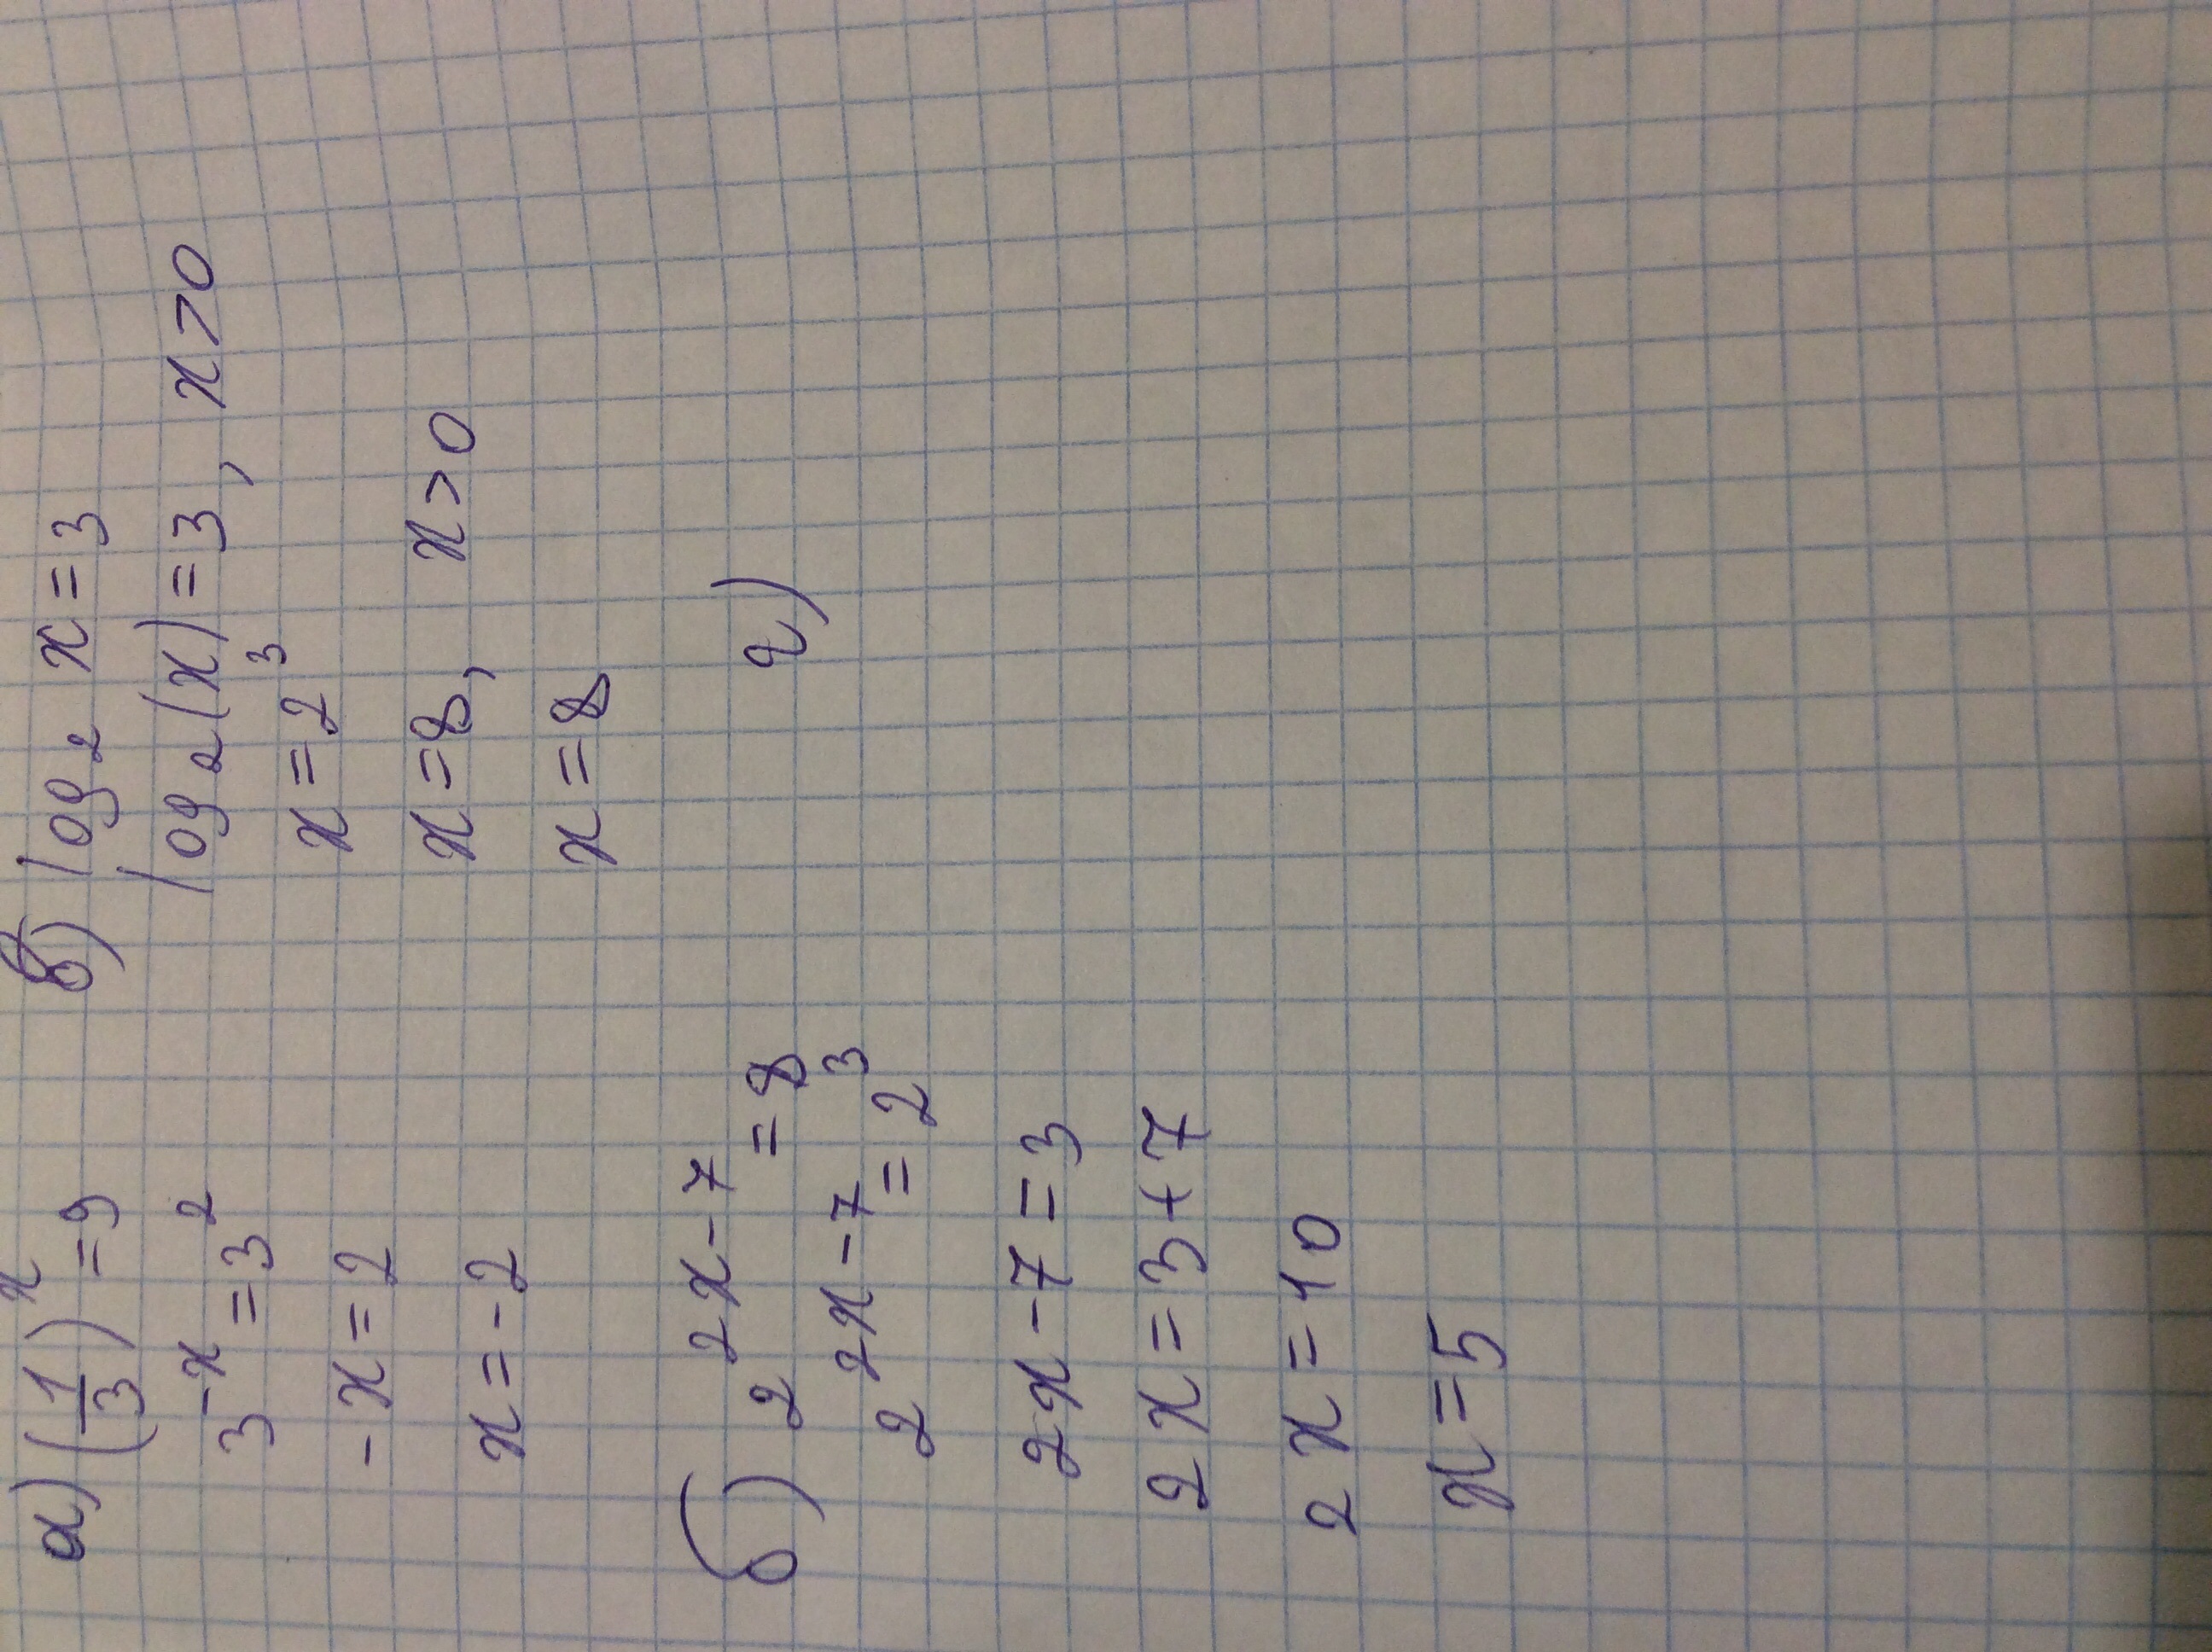 а) (1/3)^x = 9
3^-x = 3^2
-x = 2
x = -2
б) 2^2x-7 = 8
2^2x-7 = 2^3
2x - 7 = 3
2x = 3 + 7
2x = 10
x = 5
в) log₂ x = 3
log₂(x) = 3, x > 0
x = 2^3
x = 8, x > 0
x = 8
г)